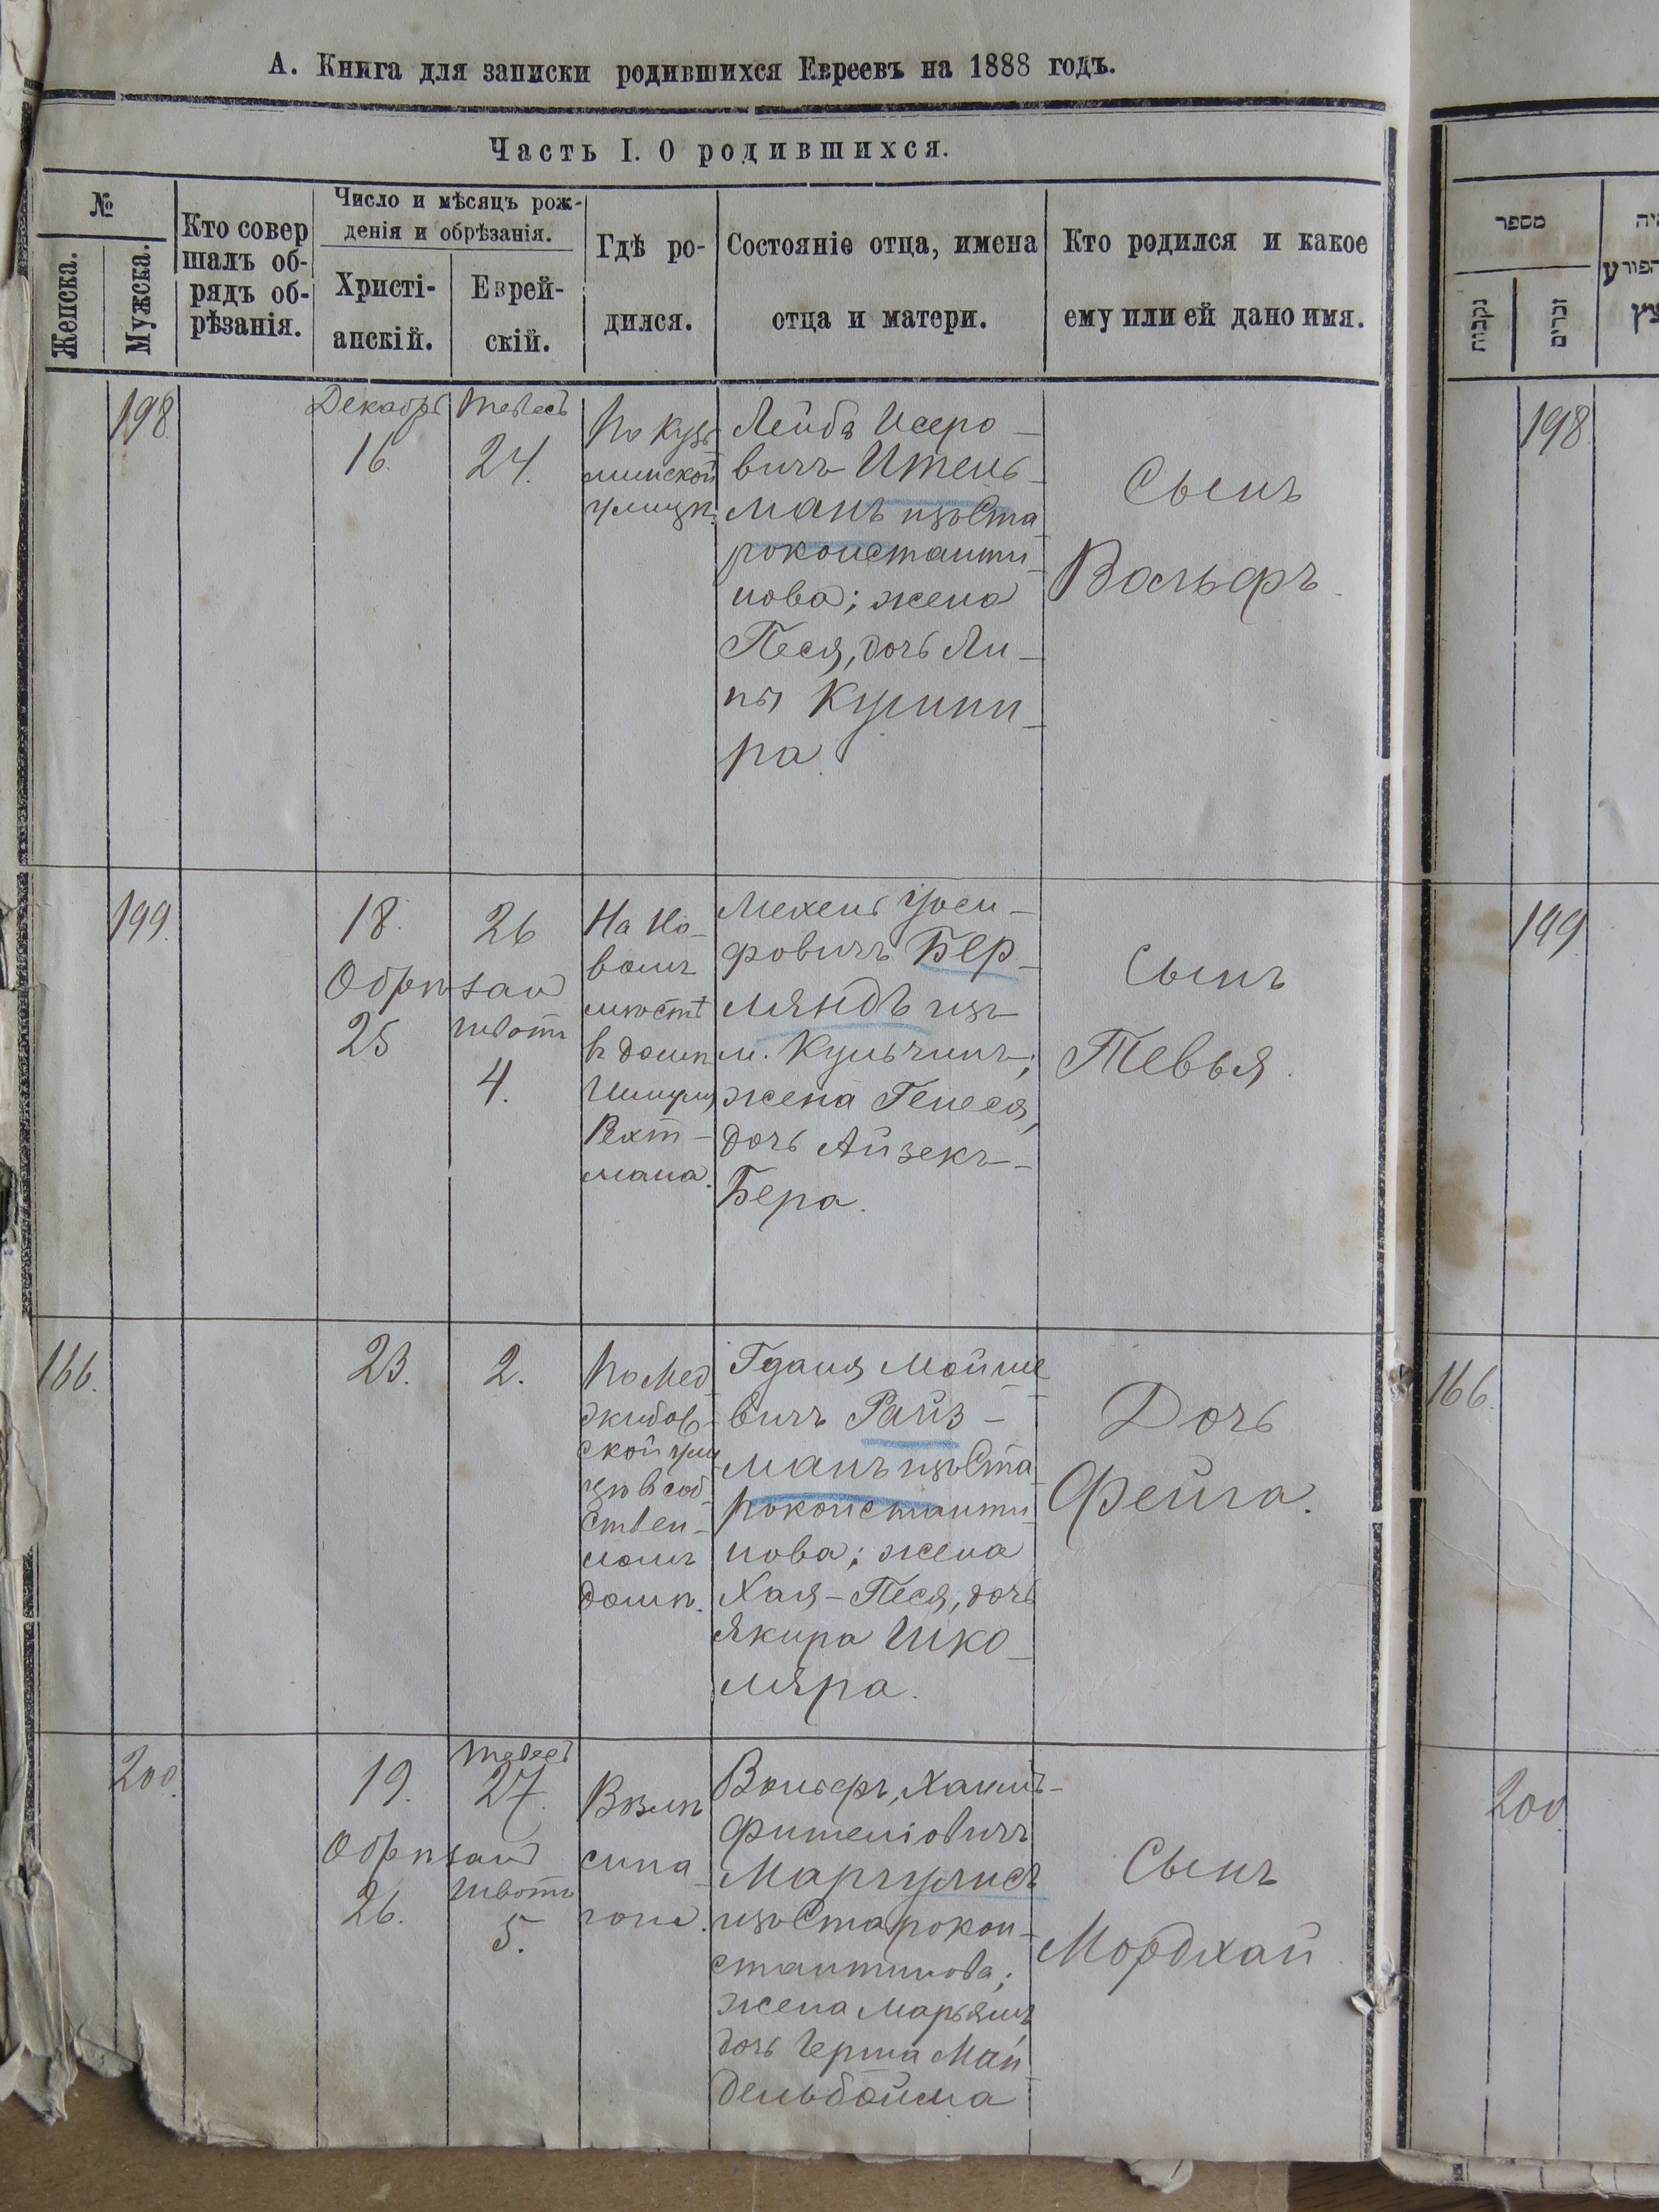 А. Книга для записки родившихся Евреевъ на 1888 годъ.
Часть I. О родившихся.
№
Женска.
Мужска.
Кто совер
шалъ об-
рядъ об-
рѣзанія.
Число и мѣсяцъ рож-
денія и обрѣзанія.
Христі-
анскій.
Еврей-
скій.
Гдѣ ро-
дился.
Состояніе отца, имена
отца и матери.
Кто родился и какое
ему или ей дано имя.
מספר
נקבות
זכרים
198
Декабрь
16.
Тевесъ
24.
По Кузь
минской
улицѣ.
Лейба Исеро-
вичъ Ительъ-
манъ изъ Ста
роконстанти-
нова; жена
Песя, дочь Ли-
пы Кушни-
ра.
Сынъ
Вольфъ.
198
199.
18.
26
Обрѣзанъ
25
Шватъ
4.
На Но-
вомъ
мѣстѣ
въ домѣ
Рехт-
мана.
Мехель Іоси-
фовичъ Бер-
ляндъ изъ
м. Кульчинъ;
жена Генеся,
дочь Айзекъ-
Бера.
Сынъ
Тевья.
199
166.
23.
2.
По Мед
жибов-
ской ули
цѣ въ соб-
ствен-
номъ
домѣ.
Гдаля Мойше
вичъ Райз-
манъ изъ Ста
роконстанти-
нова; жена
Хая-Песя, дочь
Якира Шко-
ляра.
Дочь
Фейга.
166.
200.
19.
Тевесъ
27.
Обрѣзанъ
26.
Шватъ
5.
Возлѣ
сина-
гоги.
Вольфъ, Хаимъ-
Фителіовичъ
Маргулисъ
изъ Старокон-
стантинова;
жена Марьямъ,
дочь Герша Май
дельбойма
Сынъ
Мордхай.
200.